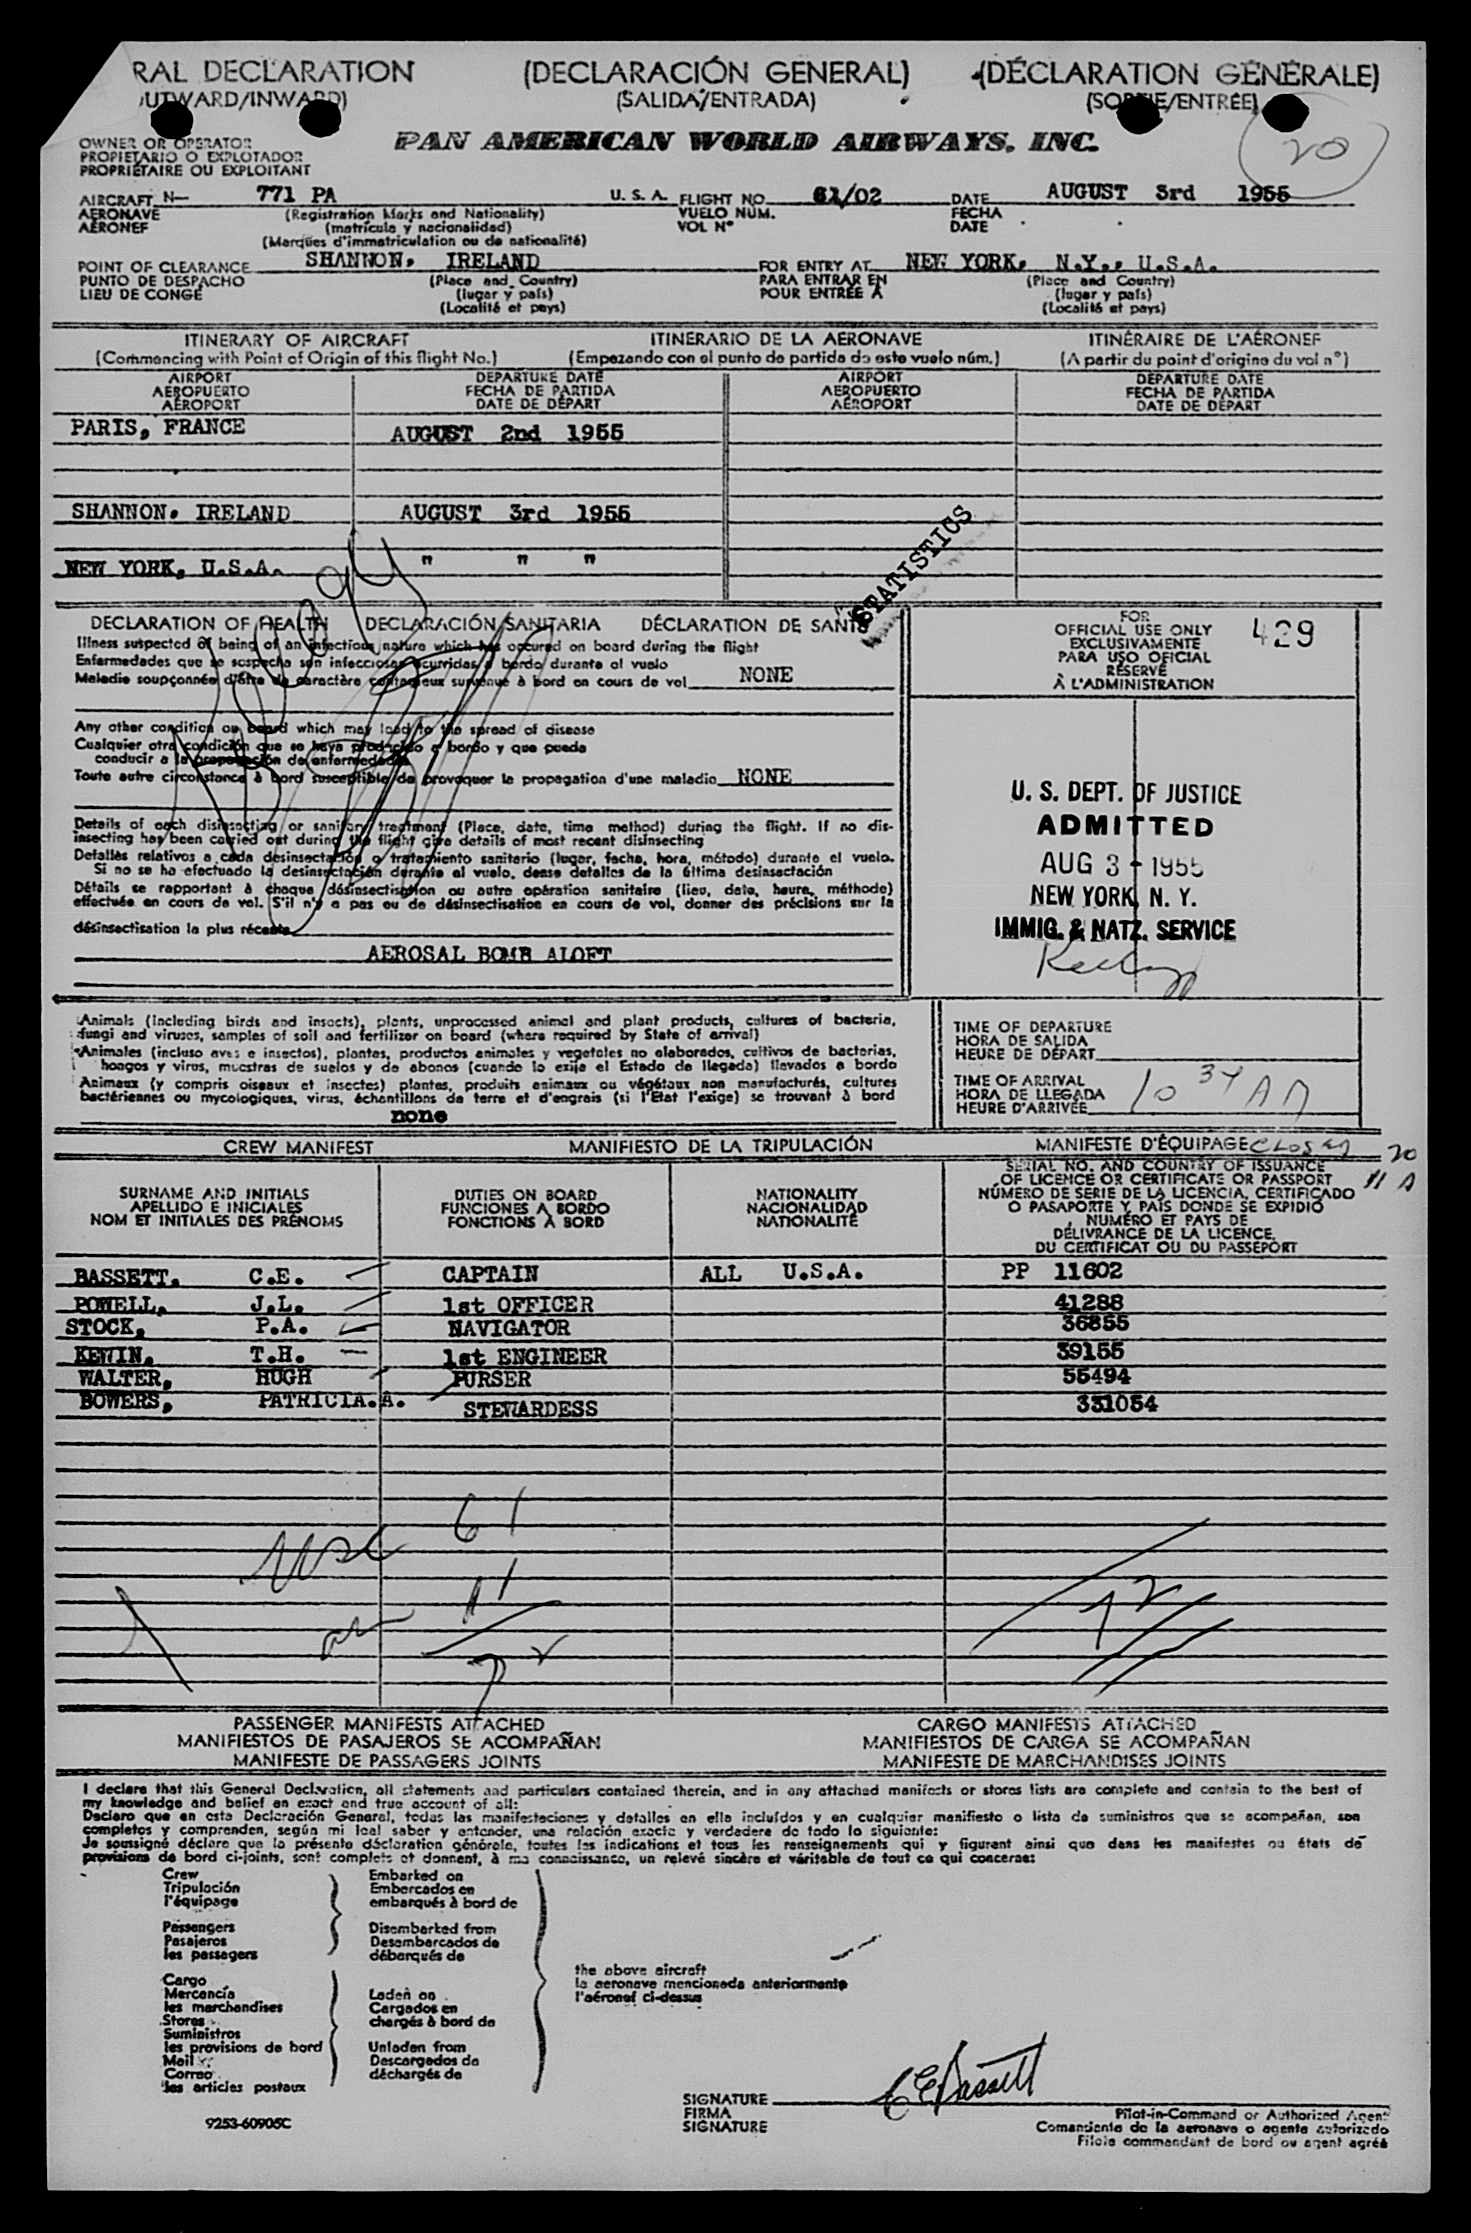 RAL DECLARATION (DECLARACIÓN GENERAL) (DÉCLARATION GÉNÉRALE)
UTWARD/INWARD) (SALIDA/ENTRADA) (SORTIE/ENTRÉE)
OWNER OR OPERATOR
PROPIETARIO O EXPLOTADOR
PROPRIÉTAIRE OU EXPLOITANT
PAN AMERICAN WORLD AIRWAYS, INC.
20
AIRCRAFT N— 771 PA U. S. A. FLIGHT NO. 61/02 DATE AUGUST 3rd 1955
AERONAVE (Registration Marks and Nationality) VUELO NÚM. FECHA
AÉRONEF (matrícula y nacionalidad) VOL Nº DATE
(Marques d'immatriculation ou de nationalité)
POINT OF CLEARANCE SHANNON, IRELAND FOR ENTRY AT NEW YORK, N.Y., U.S.A.
PUNTO DE DESPACHO (Place and Country) PARA ENTRAR EN (Place and Country)
LIEU DE CONGÉ (lugar y país) POUR ENTRÉE À (lugar y país)
(Localité et pays) (Localité et pays)
ITINERARY OF AIRCRAFT ITINERARIO DE LA AERONAVE ITINÉRAIRE DE L'AÉRONEF
(Commencing with Point of Origin of this flight No.) (Empezando con el punto de partida de este vuelo núm.) (A partir du point d'origine du vol nº)
AIRPORT DEPARTURE DATE AIRPORT DEPARTURE DATE
AEROPUERTO FECHA DE PARTIDA AEROPUERTO FECHA DE PARTIDA
AÉROPORT DATE DE DÉPART AÉROPORT DATE DE DÉPART
PARIS, FRANCE AUGUST 2nd 1955
SHANNON, IRELAND AUGUST 3rd 1955
NEW YORK, U.S.A. " " "
STATISTICS
DECLARATION OF HEALTH DECLARACIÓN SANITARIA DÉCLARATION DE SANTÉ
Illness suspected of being of an infectious nature which has occured on board during the flight
Enfermedades que se sospecha són infecciosas ocurridas a bordo durante el vuelo
Maladie soupçonnée d'être de caractère contagieux survenue à bord en cours de vol NONE
Any other condition on board which may lead to the spread of disease
Cualquier otra condición que se haya producido a bordo y que pueda
conducir a la propagación de enfermedades
Toute autre circonstance à bord susceptible de provoquer la propagation d'une maladie NONE
Details of each disinsecting or sanitary treatment (Place, date, time method) during the flight. If no dis-
insecting has been carried out during the flight give details of most recent disinsecting
Detalles relativos a cada desinsectación o tratamiento sanitario (lugar, fecha, hora, método) durante el vuelo.
Si no se ha efectuado la desinsectación durante el vuelo, dense detalles de la última desinsectación
Détails se rapportant à chaque désinsectisation ou autre opération sanitaire (lieu, date, heure, méthode)
effectuée en cours de vol. S'il n'y a pas eu de désinsectisation en cours de vol, donner des précisions sur la
désinsectisation la plus récente
AEROSAL BOMB ALOFT
FOR
OFFICIAL USE ONLY
EXCLUSIVAMENTE
PARA USO OFICIAL
RESERVÉ
À L'ADMINISTRATION
429
U. S. DEPT. OF JUSTICE
ADMITTED
AUG 3 - 1955
NEW YORK, N. Y.
IMMIG. & NATZ. SERVICE
Animals (including birds and insects), plants, unprocessed animal and plant products, cultures of bacteria,
fungi and viruses, samples of soil and fertilizer on board (where required by State of arrival)
Animales (incluso aves e insectos), plantas, productos animales y vegetales no elaborados, cultivos de bacterias,
hongos y virus, muestras de suelos y de abonos (cuando lo exija el Estado de llegada) llevados a bordo
Animaux (y compris oiseaux et insectes) plantes, produits animaux ou végétaux non manufacturés, cultures
bactériennes ou mycologiques, virus, échantillons de terre et d'engrais (si l'État l'exige) se trouvant à bord
none
TIME OF DEPARTURE
HORA DE SALIDA
HEURE DE DÉPART
TIME OF ARRIVAL
HORA DE LLEGADA
HEURE D'ARRIVÉE 10 34 AM
CREW MANIFEST MANIFIESTO DE LA TRIPULACIÓN MANIFESTE D'ÉQUIPAGE
20
11 A
SURNAME AND INITIALS
APELLIDO E INICIALES
NOM ET INITIALES DES PRÉNOMS
DUTIES ON BOARD
FUNCIONES A BORDO
FONCTIONS À BORD
NATIONALITY
NACIONALIDAD
NATIONALITÉ
SERIAL NO. AND COUNTRY OF ISSUANCE
OF LICENCE OR CERTIFICATE OR PASSPORT
NÚMERO DE SERIE DE LA LICENCIA, CERTIFICADO
O PASAPORTE Y PAÍS DONDE SE EXPIDIÓ
NUMÉRO ET PAYS DE
DÉLIVRANCE DE LA LICENCE,
DU CERTIFICAT OU DU PASSEPORT
BASSETT, C.E. CAPTAIN ALL U.S.A. PP 11602
POWELL, J.L. 1st OFFICER 41288
STOCK, P.A. NAVIGATOR 36855
KEWIN, T.H. 1st ENGINEER 39155
WALTER, HUGH PURSER 55494
BOWERS, PATRICIA.A. STEWARDESS 331054
usc 61
al 11
72
72
PASSENGER MANIFESTS ATTACHED CARGO MANIFESTS ATTACHED
MANIFIESTOS DE PASAJEROS SE ACOMPAÑAN MANIFIESTOS DE CARGA SE ACOMPAÑAN
MANIFESTE DE PASSAGERS JOINTS MANIFESTE DE MARCHANDISES JOINTS
I declare that this General Declaration, all statements and particulars contained therein, and in any attached manifests or stores lists are complete and contain to the best of
my knowledge and belief an exact and true account of all:
Declaro que en esta Declaración General, todas las manifestaciones y detalles en ella incluídos y en cualquier manifiesto o lista de suministros que se acompañan, son
completos y comprenden, según mi leal saber y entender, una relación exacta y verdadera de todo lo siguiente:
Je soussigné déclare que la présente déclaration générale, toutes les indications et tous les renseignements qui y figurent ainsi que dans les manifestes ou états de
provisions de bord ci-joints, sont complets et donnent, à ma connaissance, un relevé sincère et véritable de tout ce qui concerne:
Crew
Tripulación
l'équipage
Passengers
Pasajeros
les passagers
Cargo
Mercancía
les marchandises
Stores
Suministros
les provisions de bord
Mail
Correo
les articles postaux
Embarked on
Embarcados en
embarqués à bord de
Disembarked from
Desembarcados de
débarqués de
Laden on
Cargados en
chargés à bord de
Unladen from
Descargados de
déchargés de
the above aircraft
la aeronave mencionada anteriormente
l'aéronef ci-dessus
SIGNATURE C E Bassett
FIRMA
SIGNATURE
Pilot-in-Command or Authorized Agent
Comandante de la aeronave o agente autorizado
Pilote commandant de bord ou agent agréé
9253-60905C